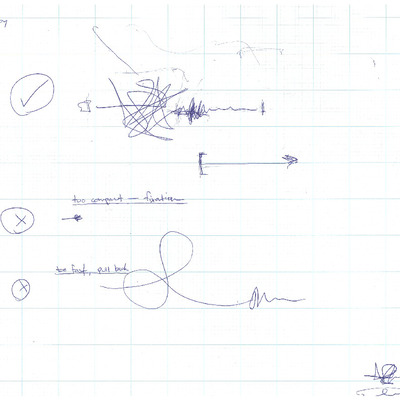 too compact — fixation
too fast, pull back